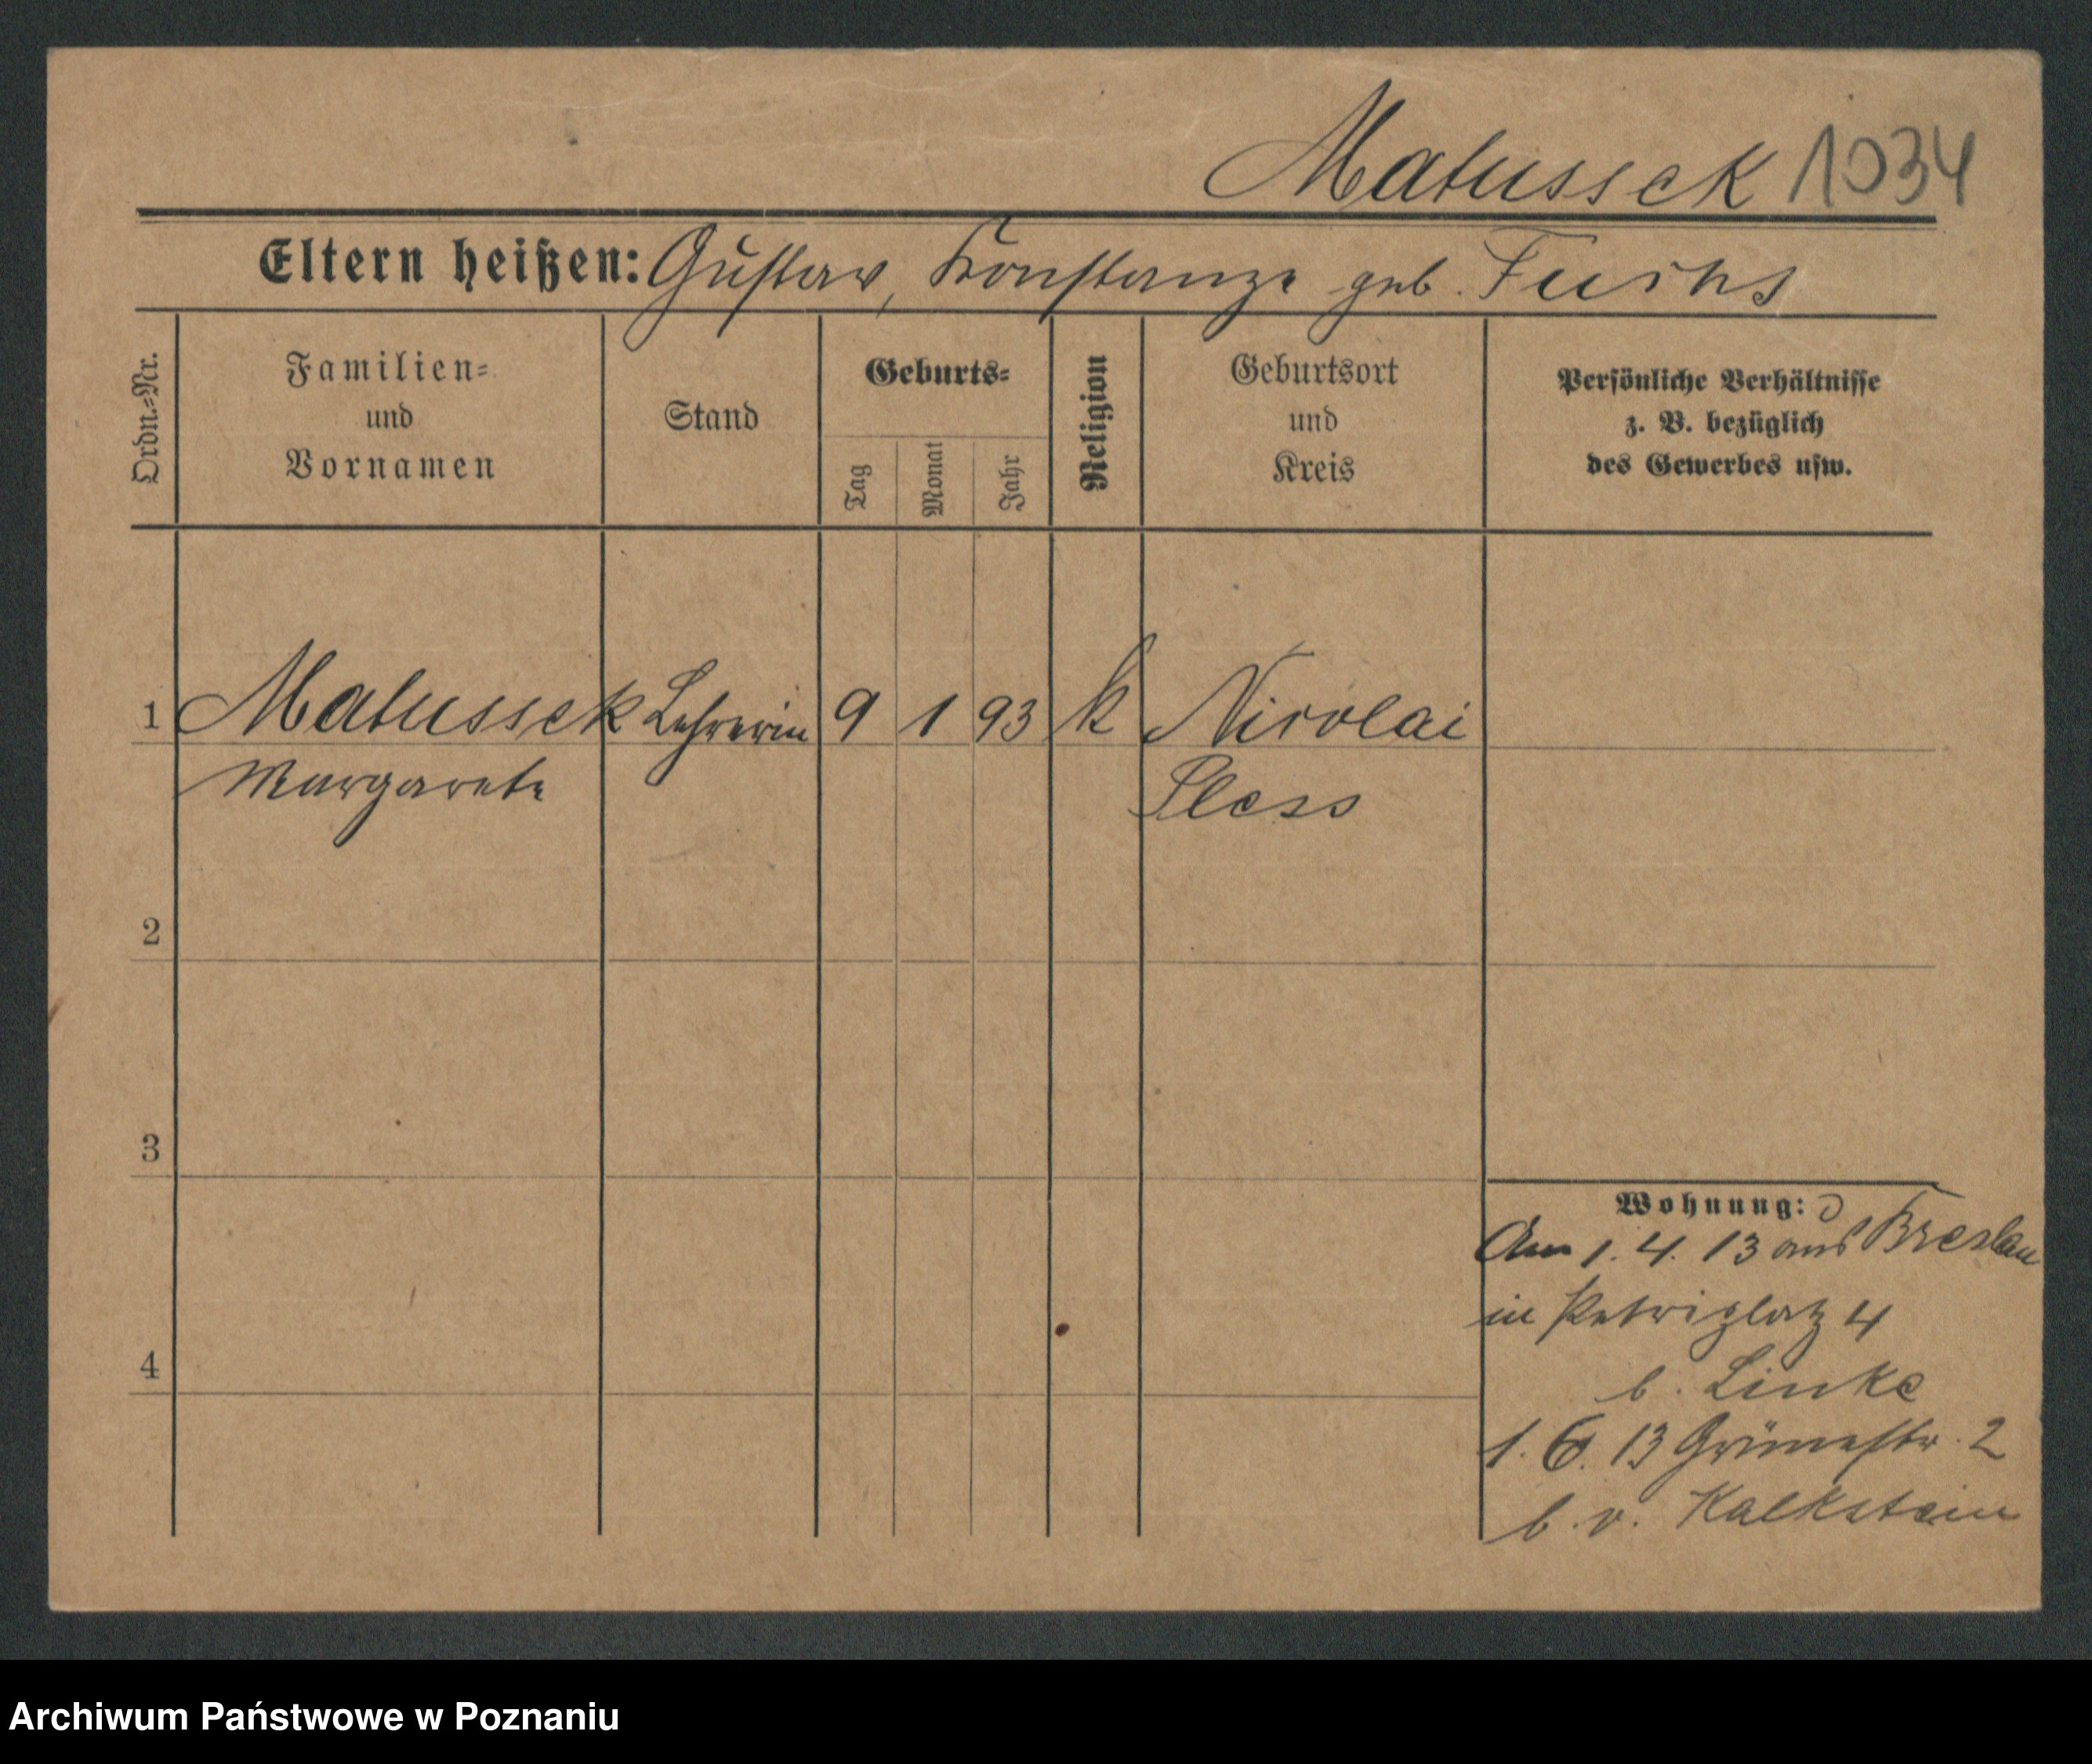 Matussek 1034
Eltern heißen: Gustav, Konstanze geb. Fuchs
Ordn.-Nr.
Familien-
und
Vornamen
Stand
Geburts-
Tag
Monat
Jahr
Religion
Geburtsort
und
Kreis
Persönliche Verhältnisse
z. B. bezüglich
des Gewerbes usw.
1 Matussek Lehrerin 9 1 93 k Nicolai
Margarete Pless
2
3
4
Wohnung:
Am 1. 4. 13 aus Breslau
in Petriplatz 4
b. Linke
1. 6. 13 Grünestr. 2
b. v. Kalkstein
Archiwum Państwowe w Poznaniu